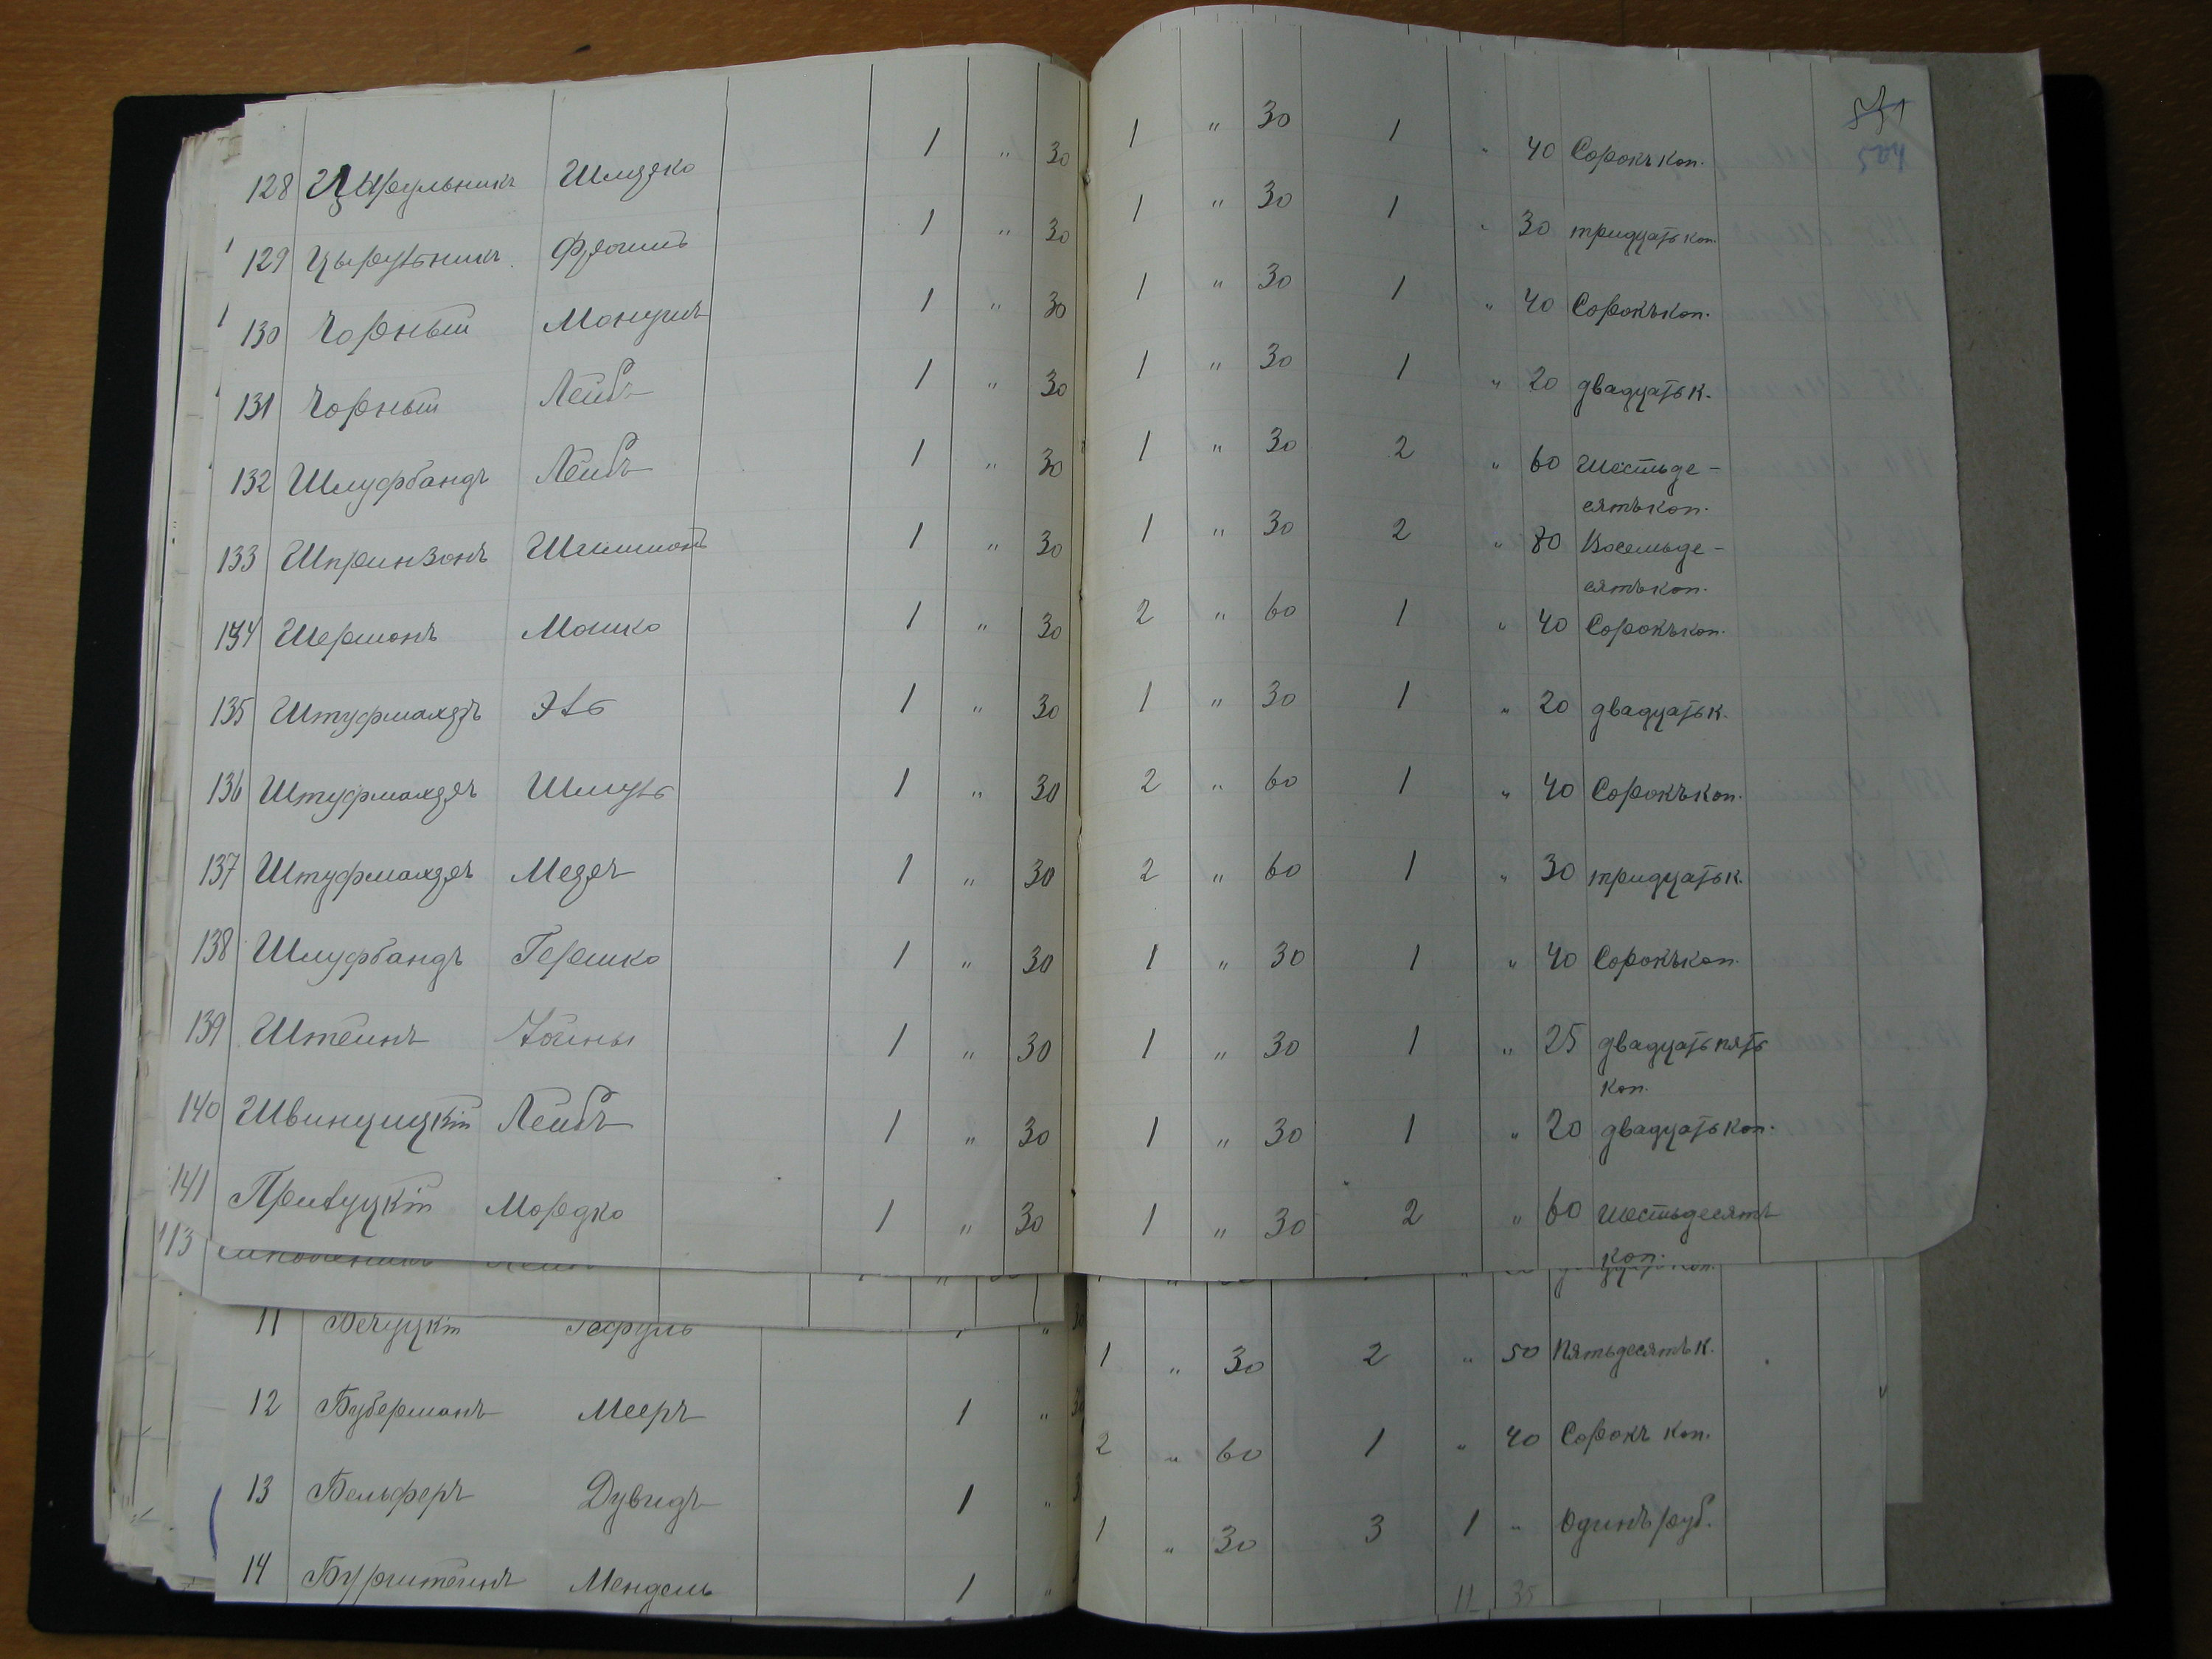 531
524
128 Цырульникъ Шлиоко 1 " 30 1 " 30 1 " 40 Сорокъ коп.
129 Цырульникъ Фроимъ 1 " 30 1 " 30 1 " 30 тридцать коп.
130 Чорный 1 " 30 1 " 30 1 " 40 Сорокъ коп.
131 Чорный Лейбъ 1 " 30 1 " 30 1 " 20 двадцать к.
132 Шлуфбандъ Лейбъ 1 " 30 1 " 30 2 " 60 Шестьде-
сятъ коп.
133 Шпринзонъ Шлимонъ 1 " 30 1 " 30 2 " 80 Восемьде-
сятъ коп.
134 Шерманъ Мошко 1 " 30 2 " 60 1 " 40 Сорокъ коп.
135 Эль 1 " 30 1 " 30 1 " 20 двадцать к.
136 Шмуль 1 " 30 2 " 60 1 " 40 Сорокъ коп.
137 1 " 30 2 " 60 1 " 30 тридцать к.
138 Шлуфбандъ Гершко 1 " 30 1 " 30 1 " 40 Сорокъ коп.
139 Штейнъ 1 " 30 1 " 30 1 " 25 двадцать пять
коп.
140 Швинцицкій Лейбъ 1 " 30 1 " 30 1 " 20 двадцать коп.
141 Прилуцкій Мордко 1 " 30 1 " 30 2 " 60 Шестьдесятъ
коп.
113
11 1 " 30 2 " 50 Пятьдесятъ к.
12 Буберманъ Мееръ 1 " 2 " 60 1 " 40 Сорокъ коп.
13 Бельферъ Дувидъ 1 " 1 " 30 3 1 " Одинъ руб.
14 Бурштейнъ Мендель 1 " 11 35